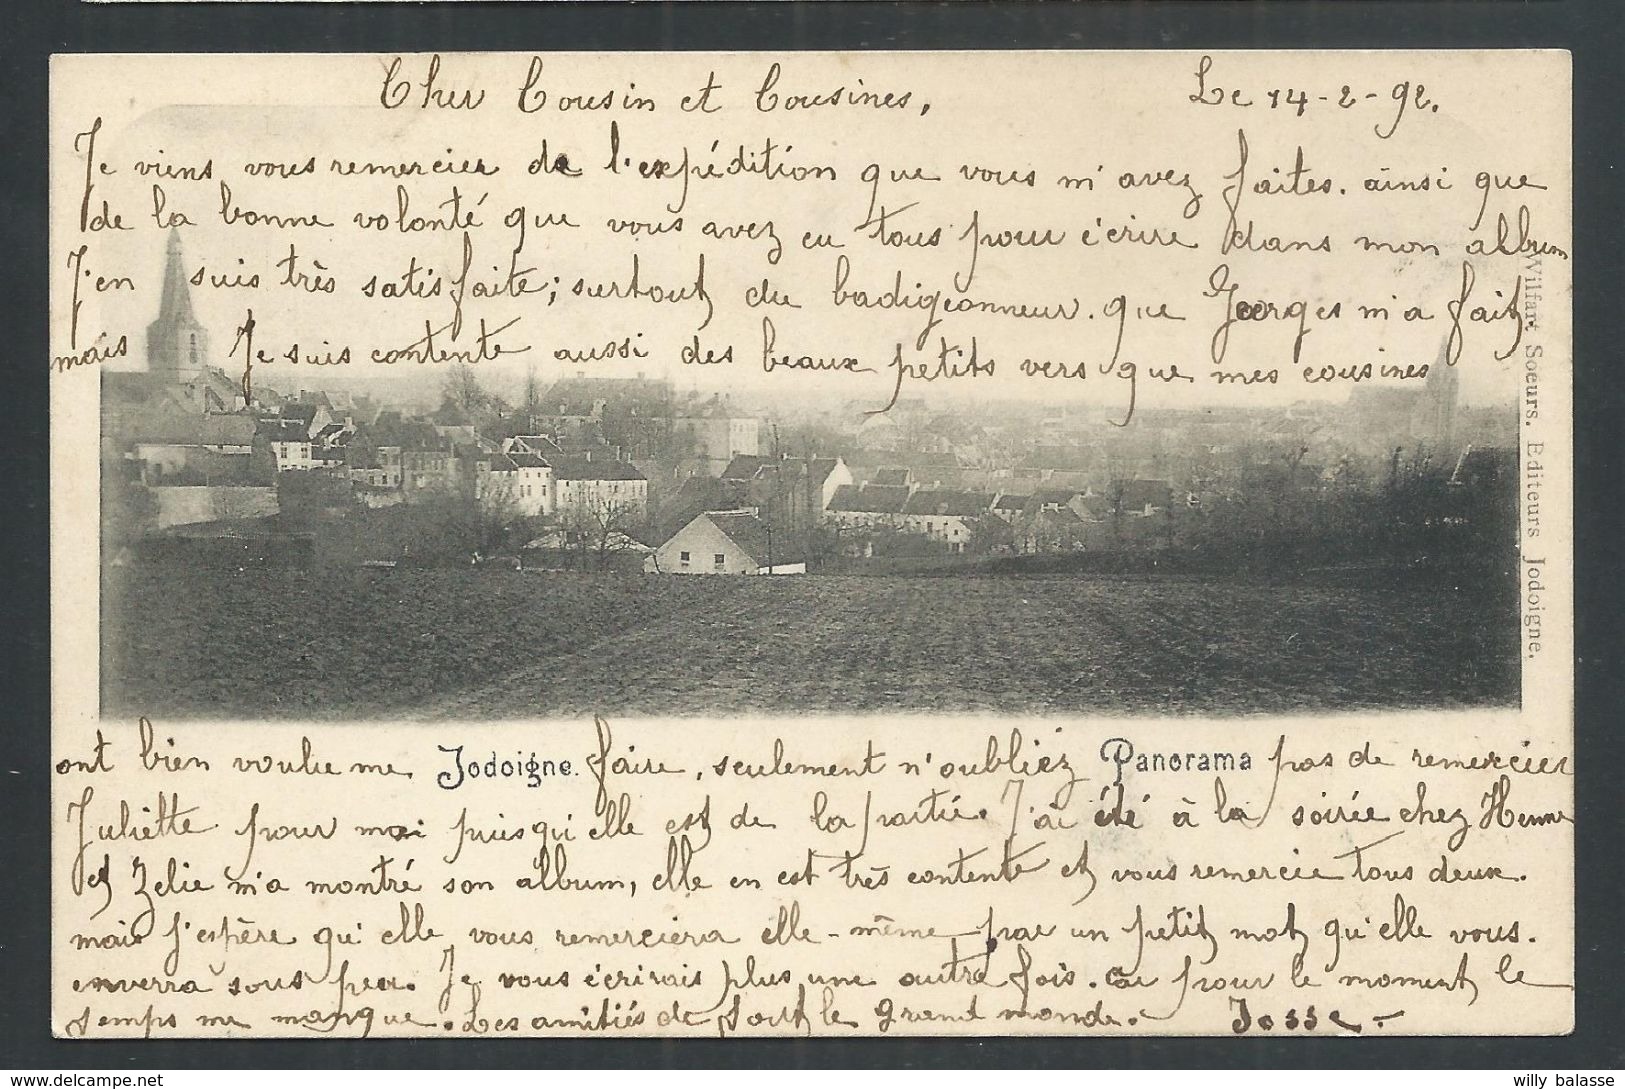 Cher Cousin et Cousines, Le 14-2-92.
Je viens vous remercier de l'expédition que vous m'avez faites. ainsi que
de la bonne volonté que vous avez eu tous pour écrire dans mon album
J'en suis très satisfaite; surtout du badigeonneur. que Georges m'a fait
mais Je suis contente aussi des beaux petits vers que mes cousines
Wilfart Soeurs. Editeurs Jodoigne.
ont bien voulu me Jodoigne. faire, seulement n'oubliéz Panorama pas de remercier
Juliette pour moi puisqu'elle est de la partie. J'ai été à la soirée chez Henne
et Zelie m'a montré son album, elle en est très contente et vous remercie tous deux.
mais j'espère qu'elle vous remerciera elle-même par un petit mot qu'elle vous.
enverra sous peu. Je vous écrirais plus une autre fois. car pour le moment le
temps me manque. Les amitiés de tout le grand monde. Josse.-
willy balasse